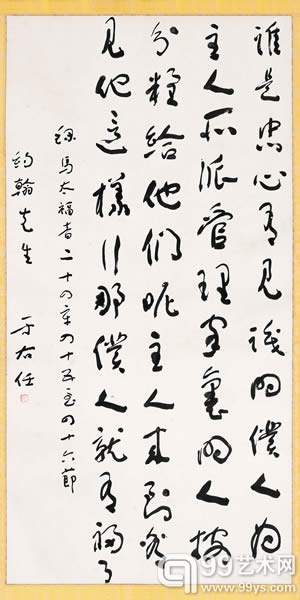 誰是忠心有見識的僕人為
主人所派管理家裏的人按
分糧給他們呢主人來到看
見他這樣行那僕人就有福了
錄馬太福音二十四章四十五至四十六節
約翰先生 于右任
99艺术网
www.99ys.com